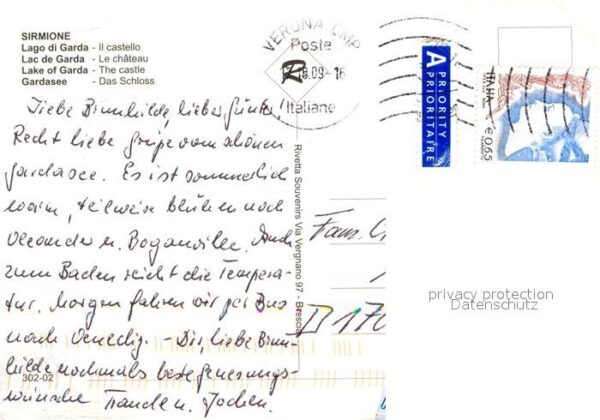 SIRMIONE
Lago di Garda - Il castello
Lac de Garda - Le château
Lake of Garda - The castle
Gardasee - Das Schloss
VERONA CMP
Poste
.09-16
Italiane
A
PRIORITY
PRIORITAIRE
ITALIA
€ 0,65
Liebe Brunhilde, lieber Günter!
Recht liebe Grüße vom schönen
Gardasee. Es ist sommerlich
warm, teilweise blühen noch
Oleander u. Boganville. Auch
zum Baden reicht die Tempera-
tur. Morgen fahren wir per Bus
nach Venedig. - Dir, liebe Brun-
hilde nochmals beste Genesungs-
wünsche Traude u. Jochen.
Rivetta Souvenirs Via Vergnano 97 - Brescia
Fam.
D 170
privacy protection
Datenschutz
302-02